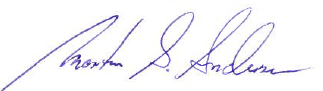 Martin S. Anderson